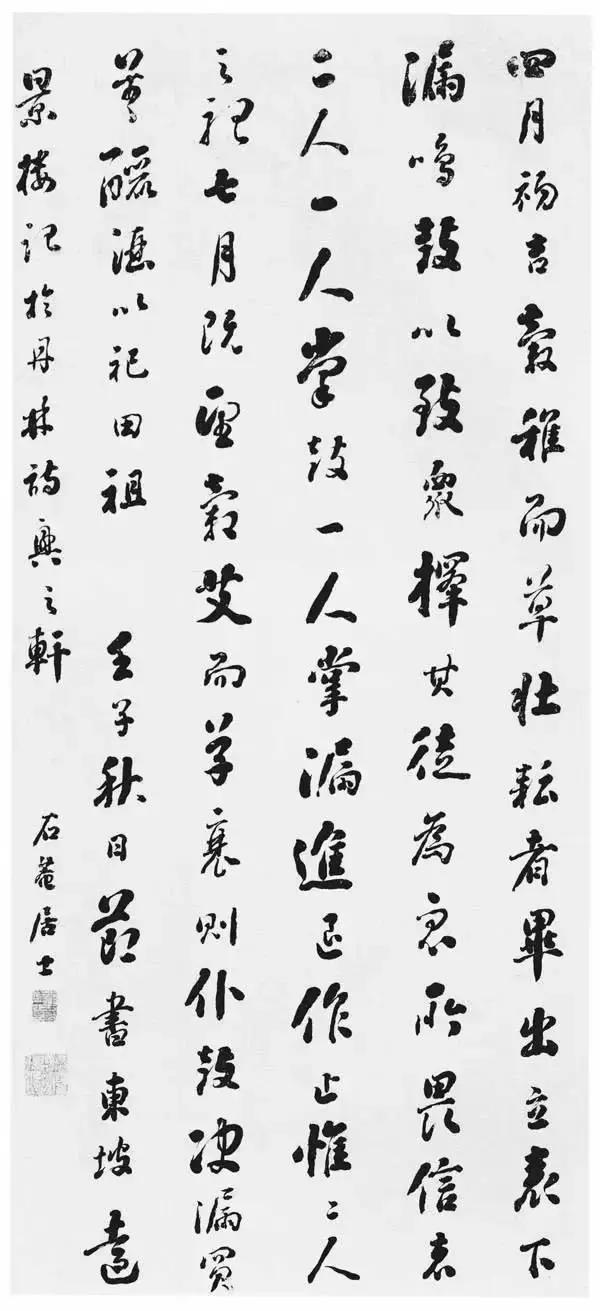 四月初吉穀稚而草壯耘者畢出立表下
漏鳴鼓以致眾擇其徒為眾所畏信者
二人一人掌鼓一人掌漏進退作止惟二人
之聽七月既望穀艾而草衰則仆鼓決漏買
釃以祀田祖 壬子秋日節書東坡遠
景樓記於丹林詩興之軒
石菴居士